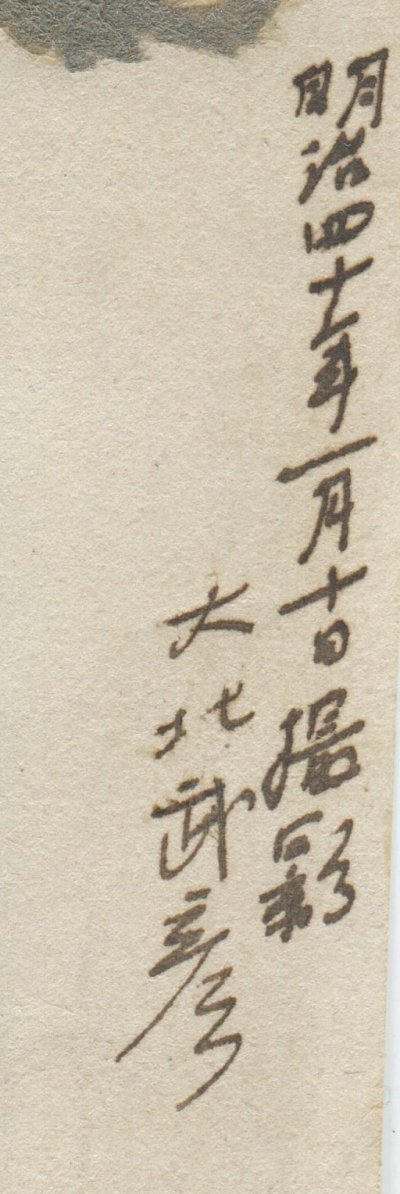 明治四十二年一月十日撮影
大北武彦